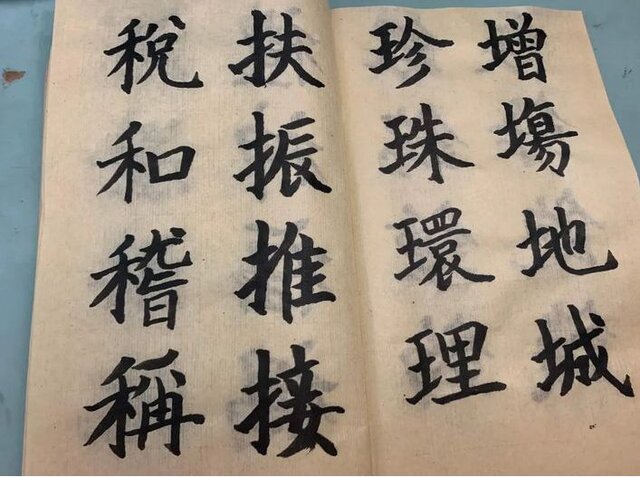 增塲地城
珍珠環理
扶振推接
稅和稽稱